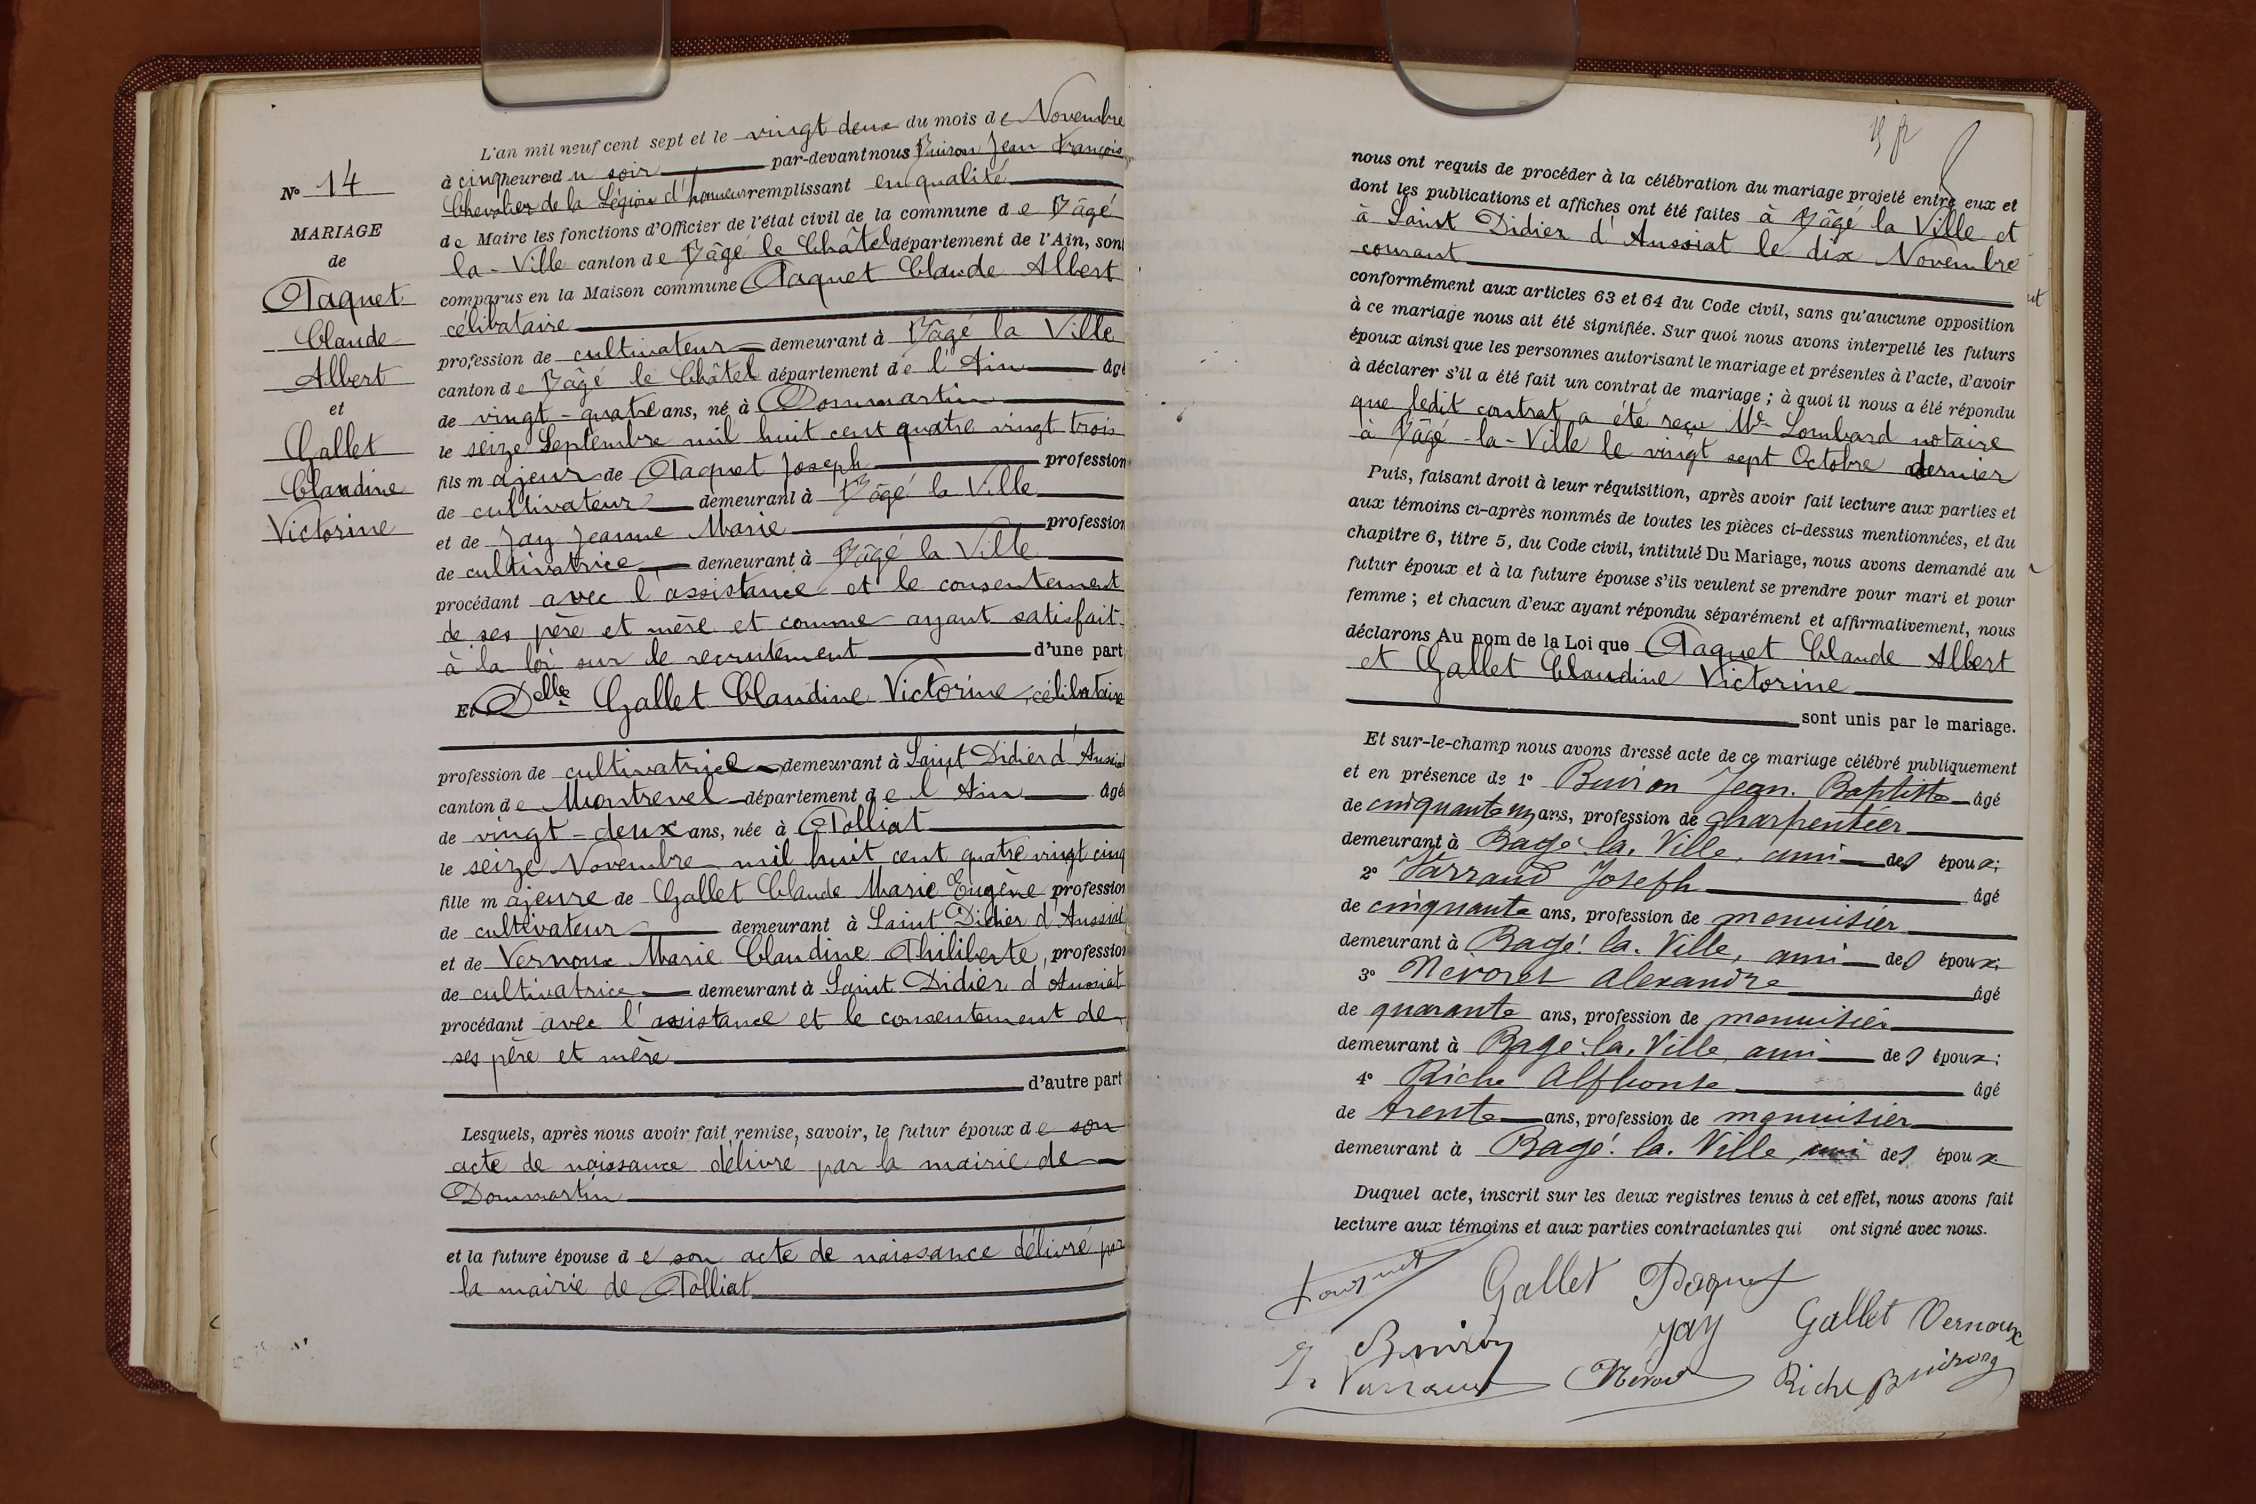 N° 14
MARIAGE
de
Paquet
Claude
Albert
et
Gallet
Claudine
Victorine
L'an mil neuf cent sept et le vingt deux du mois de Novembre
à cinq heures du soir par-devant nous Buiron Jean François
Chevalier de la Légion d'honneur remplissant en qualité
de Maire les fonctions d'Officier de l'état civil de la commune de Bâgé
la-Ville canton de Bâgé le Châtel département de l'Ain, sont
comparus en la Maison commune Paquet Claude Albert
célibataire
profession de cultivateur demeurant à Bâgé la Ville
canton de Bâgé le Châtel département de l'Ain âgé
de vingt-quatre ans, né à Dommartin
le seize Septembre mil huit cent quatre vingt trois
fils majeur de Paquet Joseph profession
de cultivateur demeurant à Bâgé la Ville
et de Jay Jeanne Marie profession
de cultivatrice demeurant à Bâgé la Ville
procédant avec l'assistance et le consentement
de ses père et mère et comme ayant satisfait
à la loi sur le recrutement d'une part
Et Delle Gallet Claudine Victorine, célibataire
profession de cultivatrice demeurant à Saint Didier d'Aussiat
canton de Montrevel département de l'Ain âgé
de vingt-deux ans, née à Polliat
le seize Novembre mil huit cent quatre vingt cinq
fille majeure de Gallet Claude Marie Eugène profession
de cultivateur demeurant à Saint Didier d'Aussiat
et de Vernoux Marie Claudine Philiberte, profession
de cultivatrice demeurant à Saint Didier d'Aussiat
procédant avec l'assistance et le consentement de
ses père et mère
d'autre part
Lesquels, après nous avoir fait remise, savoir, le futur époux de son
acte de naissance délivré par la mairie de
Dommartin
et la future épouse de son acte de naissance délivré par
la mairie de Polliat
nous ont requis de procéder à la célébration du mariage projeté entre eux et
dont les publications et affiches ont été faites à Bâgé la Ville et
à Saint Didier d'Aussiat le dix Novembre
courant
conformément aux articles 63 et 64 du Code civil, sans qu'aucune opposition
à ce mariage nous ait été signifiée. Sur quoi nous avons interpellé les futurs
époux ainsi que les personnes autorisant le mariage et présentes à l'acte, d'avoir
à déclarer s'il a été fait un contrat de mariage ; à quoi il nous a été répondu
que ledit contrat a été reçu Me Lombard notaire
à Bâgé-la-Ville le vingt sept Octobre dernier
Puis, faisant droit à leur réquisition, après avoir fait lecture aux parties et
aux témoins ci-après nommés de toutes les pièces ci-dessus mentionnées, et du
chapitre 6, titre 5, du Code civil, intitulé Du Mariage, nous avons demandé au
futur époux et à la future épouse s'ils veulent se prendre pour mari et pour
femme ; et chacun d'eux ayant répondu séparément et affirmativement, nous
déclarons Au nom de la Loi que Paquet Claude Albert
et Gallet Claudine Victorine
sont unis par le mariage.
Et sur-le-champ nous avons dressé acte de ce mariage célébré publiquement
et en présence de 1° Buiron Jean. Baptiste âgé
de cinquante un ans, profession de charpentier
demeurant à Bagé. la. Ville, ami des époux;
2° Varraud Joseph âgé
de cinquante ans, profession de menuisier
demeurant à Bagé. la. Ville, ami des époux;
3° Nevoret Alexandre âgé
de quarante ans, profession de menuisier
demeurant à Bagé. la. Ville, ami des époux;
4° Riche Alphonse âgé
de trente ans, profession de menuisier
demeurant à Bagé. la. Ville, ami des époux
Duquel acte, inscrit sur les deux registres tenus à cet effet, nous avons fait
lecture aux témoins et aux parties contractantes qui ont signé avec nous.
Paquet Gallet Paquet
Buiron Jay Gallet Vernoux
J. Varraud Nevoret Riche Buiron